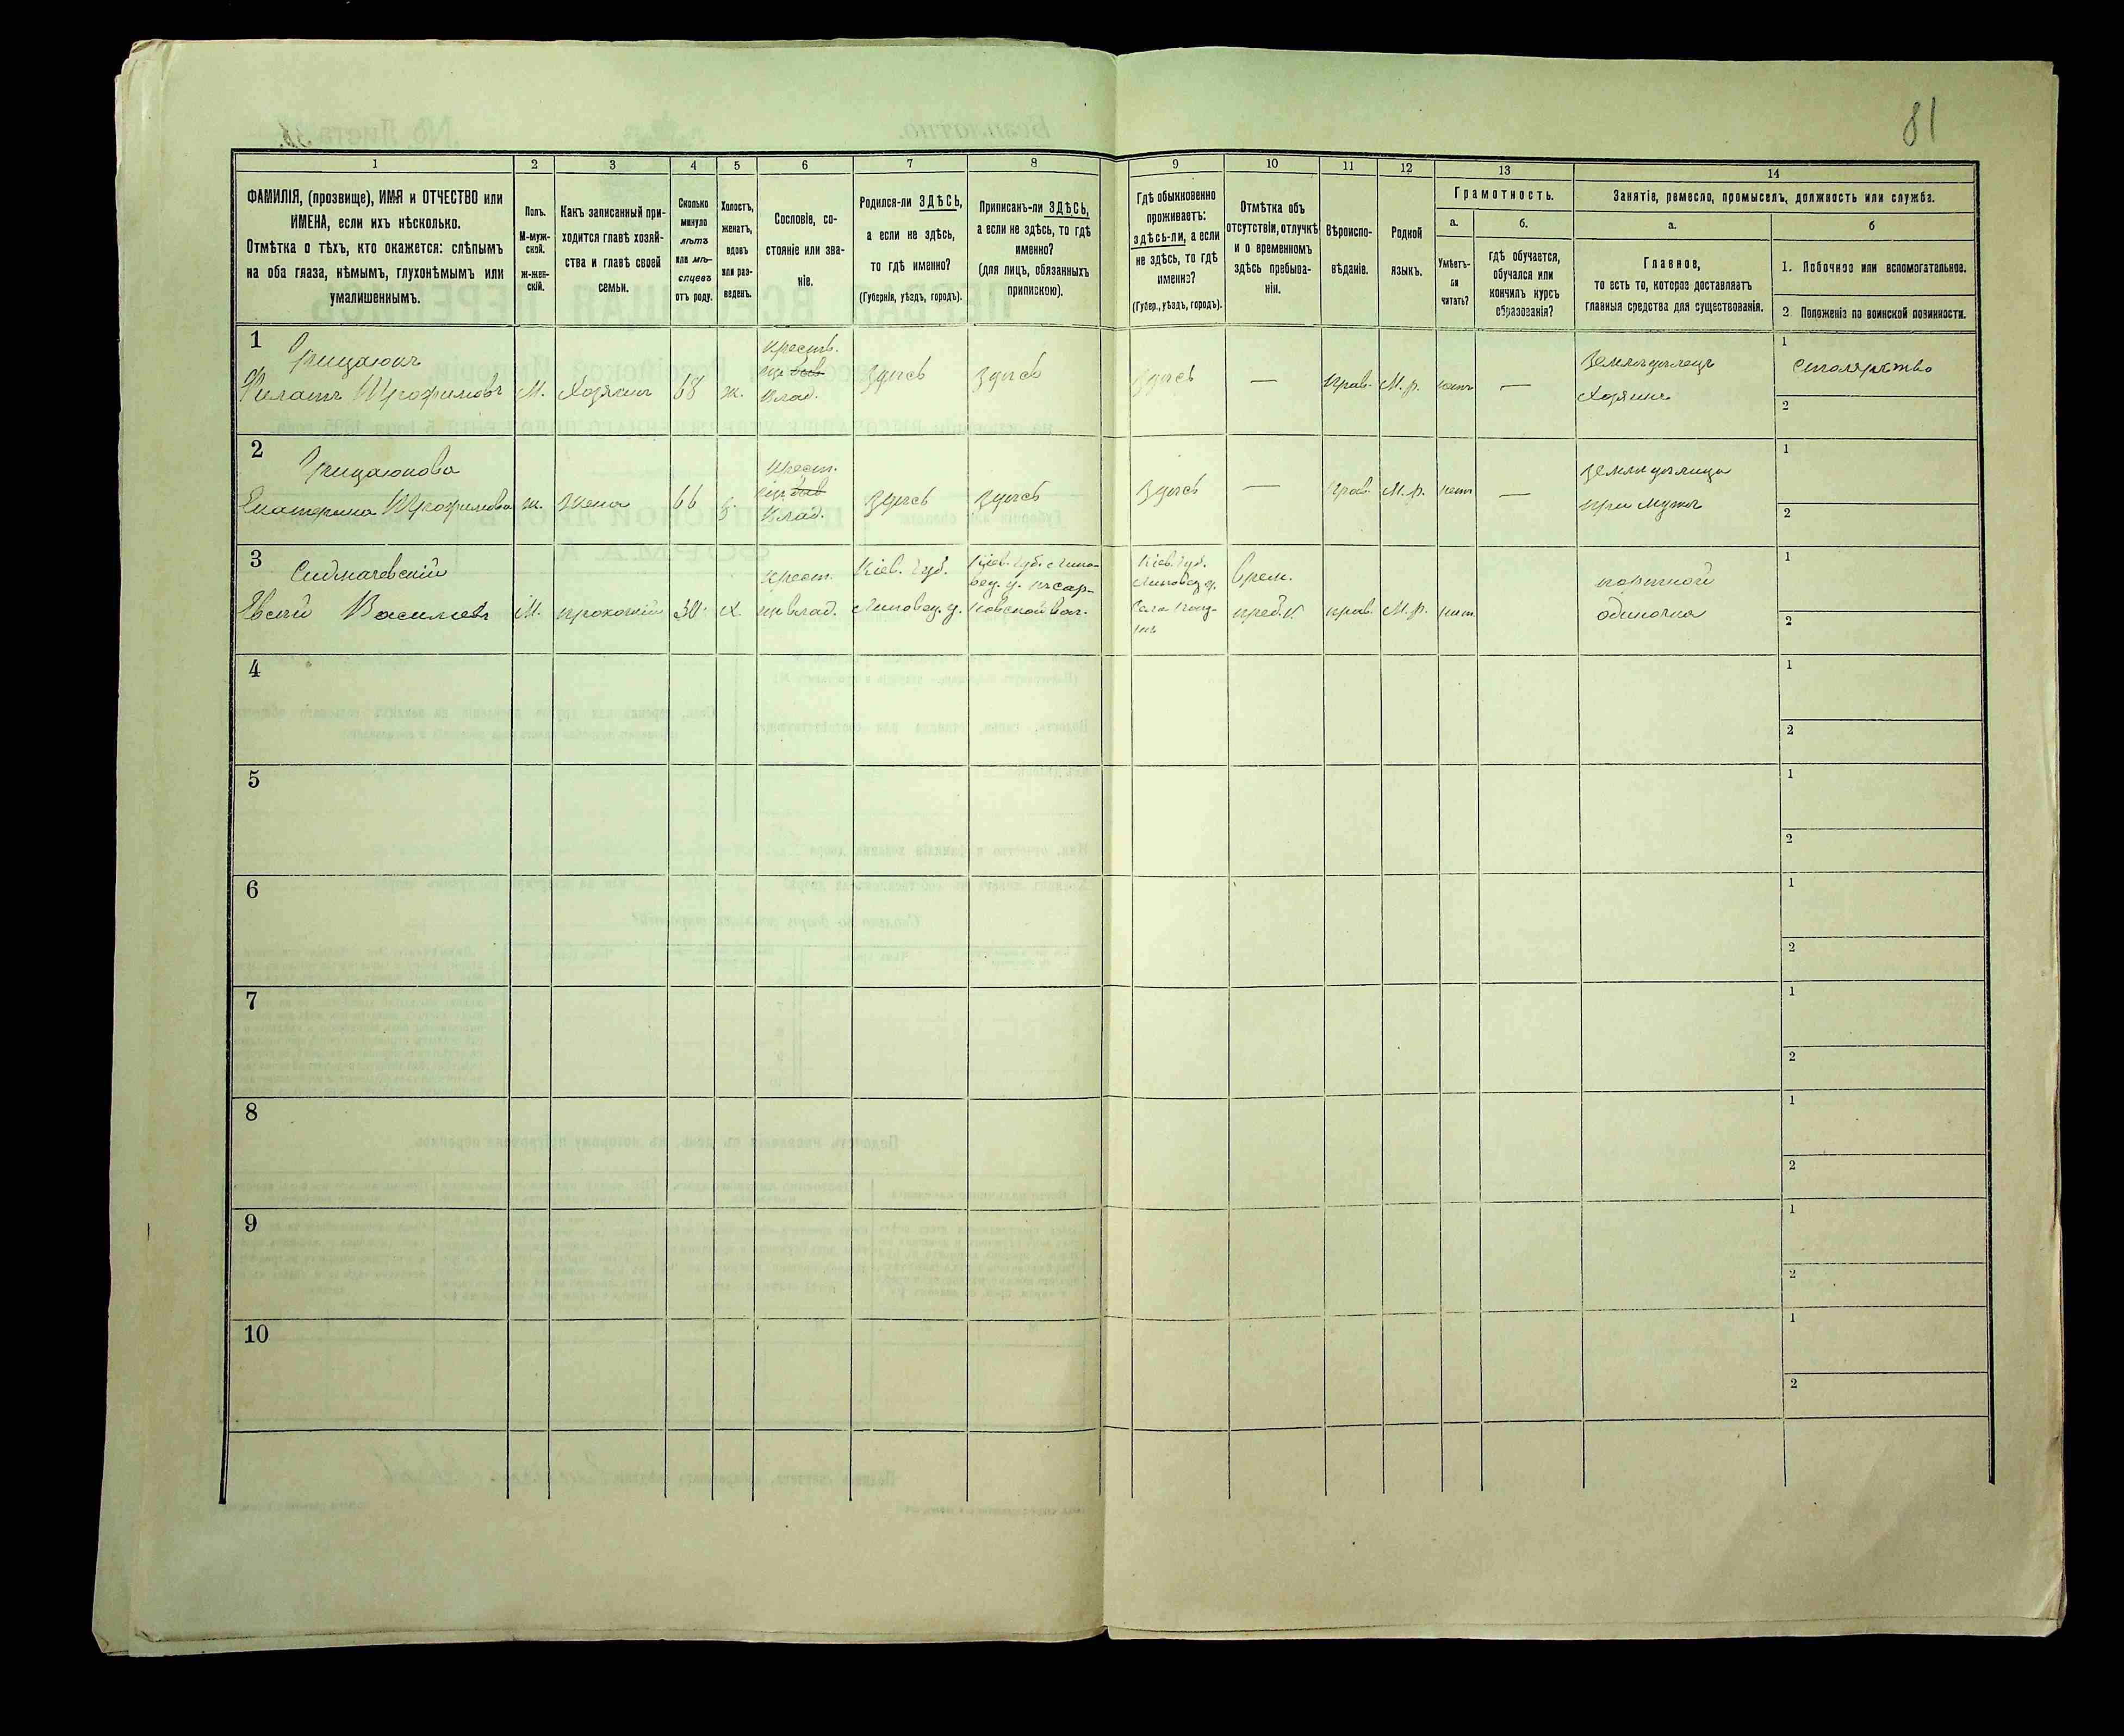 81
1 2 3 4 5 6 7 8 9 10 11 12 13 14
ФАМИЛІЯ, (прозвище), ИМЯ и ОТЧЕСТВО или
ИМЕНА, если ихъ нѣсколько.
Отмѣтка о тѣхъ, кто окажется: слѣпымъ
на оба глаза, нѣмымъ, глухонѣмымъ или
умалишеннымъ.
Полъ.
М-муж-
ской.
Ж-жен-
скій.
Какъ записанный при-
ходится главѣ хозяй-
ства и главѣ своей
семьи.
Сколько
минуло
лѣтъ
или мѣ-
сяцевъ
отъ роду.
Холостъ,
женатъ,
вдовъ
или раз-
веденъ.
Сословіе, со-
стояніе или зва-
ніе.
Родился-ли ЗДѢСЬ,
а если не здѣсь,
то гдѣ именно?
(Губернія, уѣздъ, городъ).
Приписанъ-ли ЗДѢСЬ,
а если не здѣсь, то гдѣ
именно?
(для лицъ, обязанныхъ
припискою).
Гдѣ обыкновенно
проживаетъ:
здѣсь-ли, а если
не здѣсь, то гдѣ
именно?
(Губер., уѣздъ, городъ).
Отмѣтка объ
отсутствіи, отлучкѣ
и о временномъ
здѣсь пребыва-
ніи.
Вѣроиспо-
вѣданіе.
Родной
языкъ.
Грамотность.
а.
Умѣетъ-
ли
читать?
б.
гдѣ обучается,
обучался или
кончилъ курсъ
образованія?
Занятіе, ремесло, промыселъ, должность или служба.
а.
Главное,
то есть то, которое доставляетъ
главныя средства для существованія.
б
1. Побочное или вспомогательное.
2. Положеніе по воинской повинности.
1
Грицаюкъ
Филатъ Трофимовъ
М.
Хозяинъ
68
ж.
Крестъ.
влад.
Здѣсь
Здѣсь
Здѣсь
—
Прав.
М.р.
нѣтъ
—
Земледѣлецъ
Хозяинъ
1
Столярство
2
2
Грицаюкова
Екатерина Трофимова
ж.
Жена
66
З.
Крест.
влад.
Здѣсь
Здѣсь
Здѣсь
—
Прав.
М.р.
нетъ
—
Земледѣлица
при мужѣ
1
2
3
Василіевъ
М.
30
Х.
Крест.
влад.
Кіев. Губ.
Липовец. у.
Кіев. Губ. Липо-
вец. у.
Кіев. Губ.
Липовец. у.
Врем.
преб.
прав.
М.р.
нѣт
портной
одиночка
1
2
4
1
2
5
1
2
6
1
2
7
1
2
8
1
2
9
1
2
10
1
2